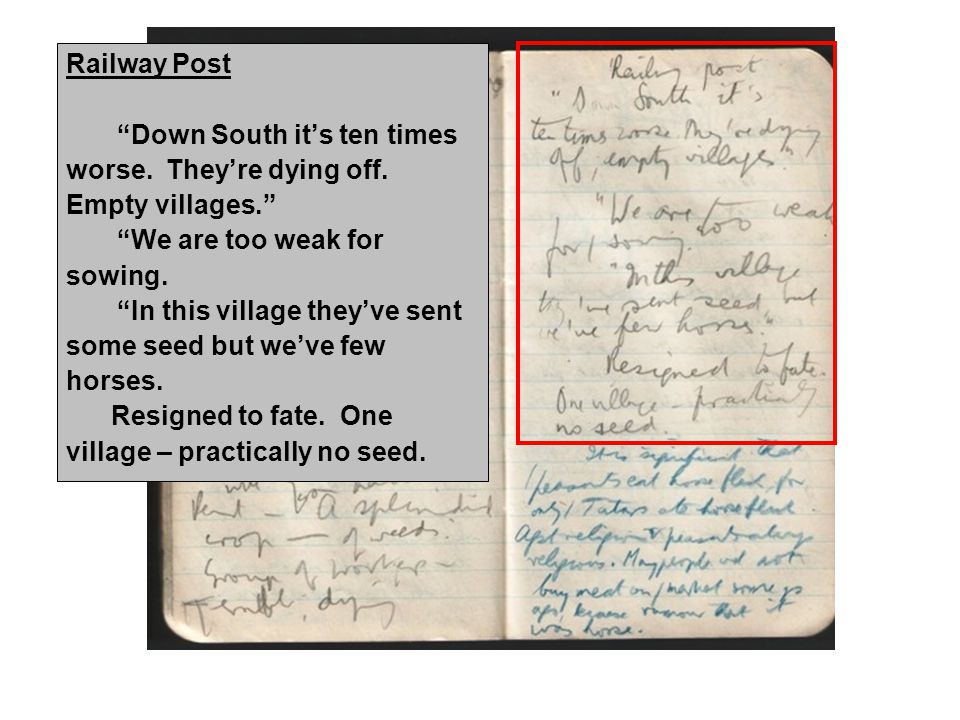 Railway Post
“Down South it’s ten times
worse. They’re dying off.
Empty villages.”
“We are too weak for
sowing.
“In this village they’ve sent
some seed but we’ve few
horses.
Resigned to fate. One
village – practically no seed.
A splendid
crop — of weeds.
Group of workers –
Terrible, dying
Railway post
"Down South it's
ten times worse They're dying
off, empty villages"
"We are too weak
for sowing.
"In this village
they've sent seed but
we've few horses."
Resigned to fate.
One village – practically
no seed.
It is significant that
peasants eat horse flesh, for
only Tatars ate horseflesh.
religion & peasants always
religious. Many people wd not
buy meat on market some
ago, because rumour that it
was horse.